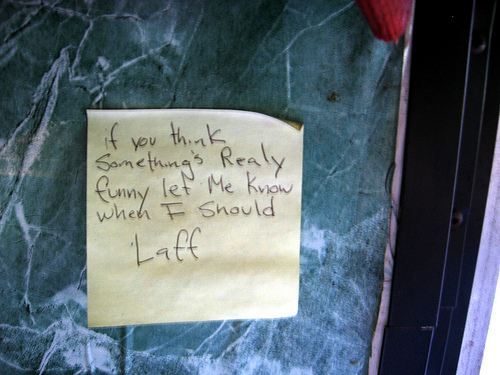 if you think
Something's Realy
funny let Me Know
when I should
Laff